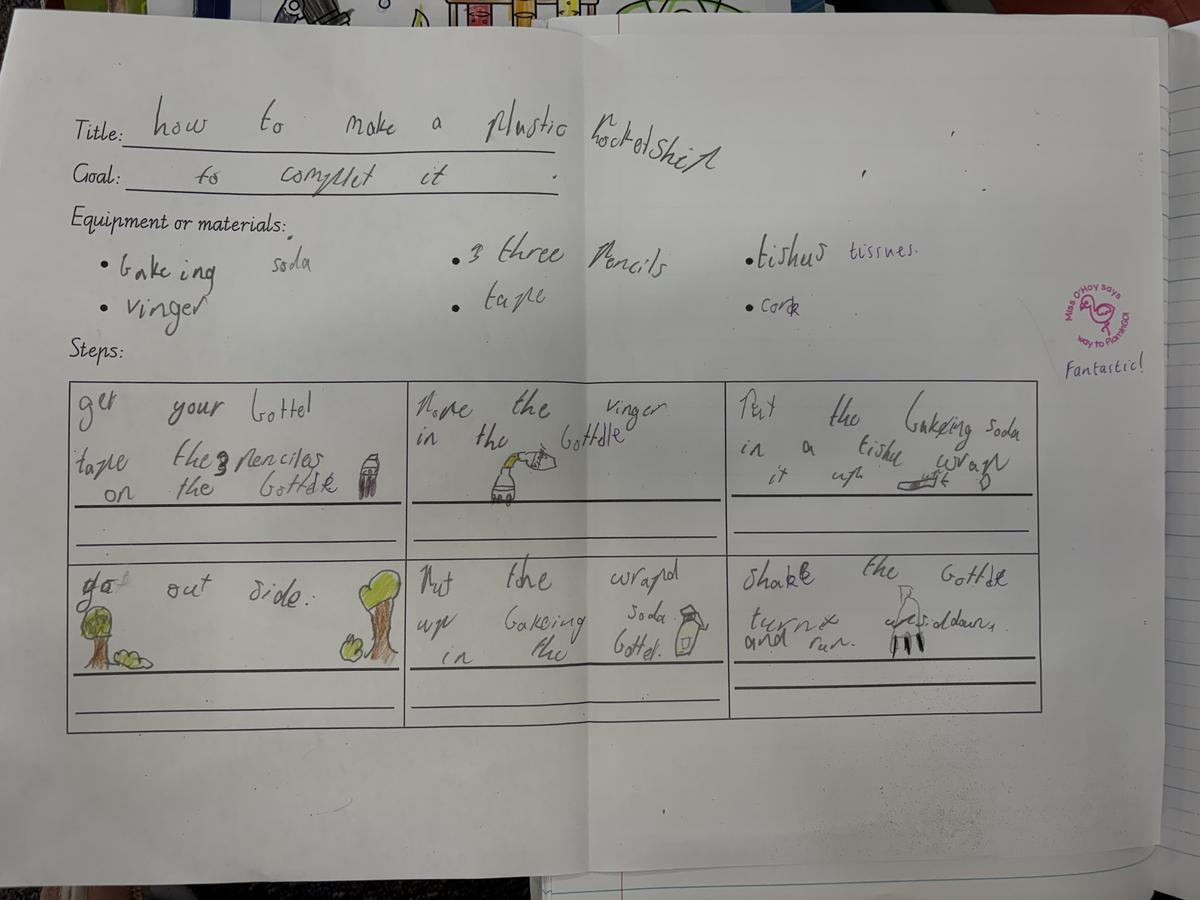 Title: how to make a plastic Rocketship
Goal: to complet it .
Equipment or materials:
• bakeing soda
• 3 three Pencils
• tishus tissues.
• vinger
• tape
• cork
Steps:
get your bottel
tape the 3 penciles
on the bottle
Pore the vinger
in the bottle
Put the bakeing soda
in a tishu wrap
it up
go out side.
Put the wrapd
up bakeing soda
in the bottel.
Shake the bottle
turn it upsiddown
and run.
Miss O'Hoy says
way to flamingo!
Fantastic!